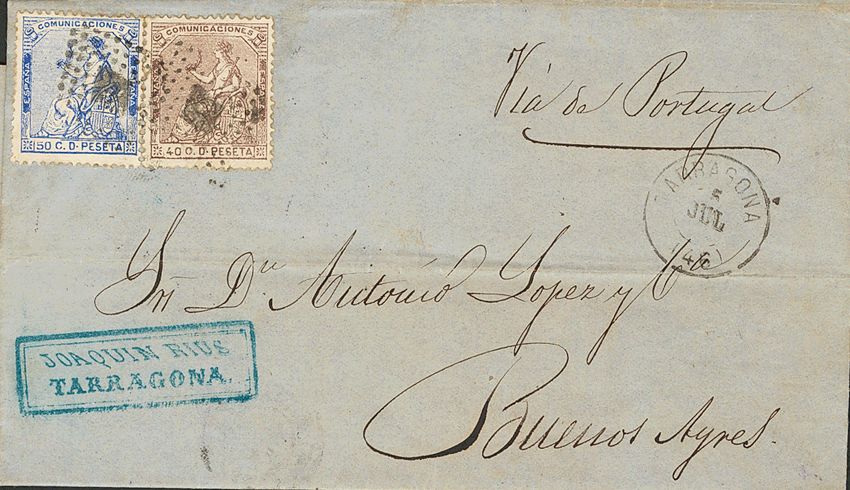 COMUNICACIONES
ESPAÑA
ESPAÑA
50 C. D. PESETA
COMUNICACIONES
ESPAÑA
ESPAÑA
40 C. D. PESETA
Via de Portugal
TARRAGONA
5
JUL
Sr Dn Antonio Lopez y Ca
JOAQUIN RIUS
TARRAGONA.
Buenos Ayres.